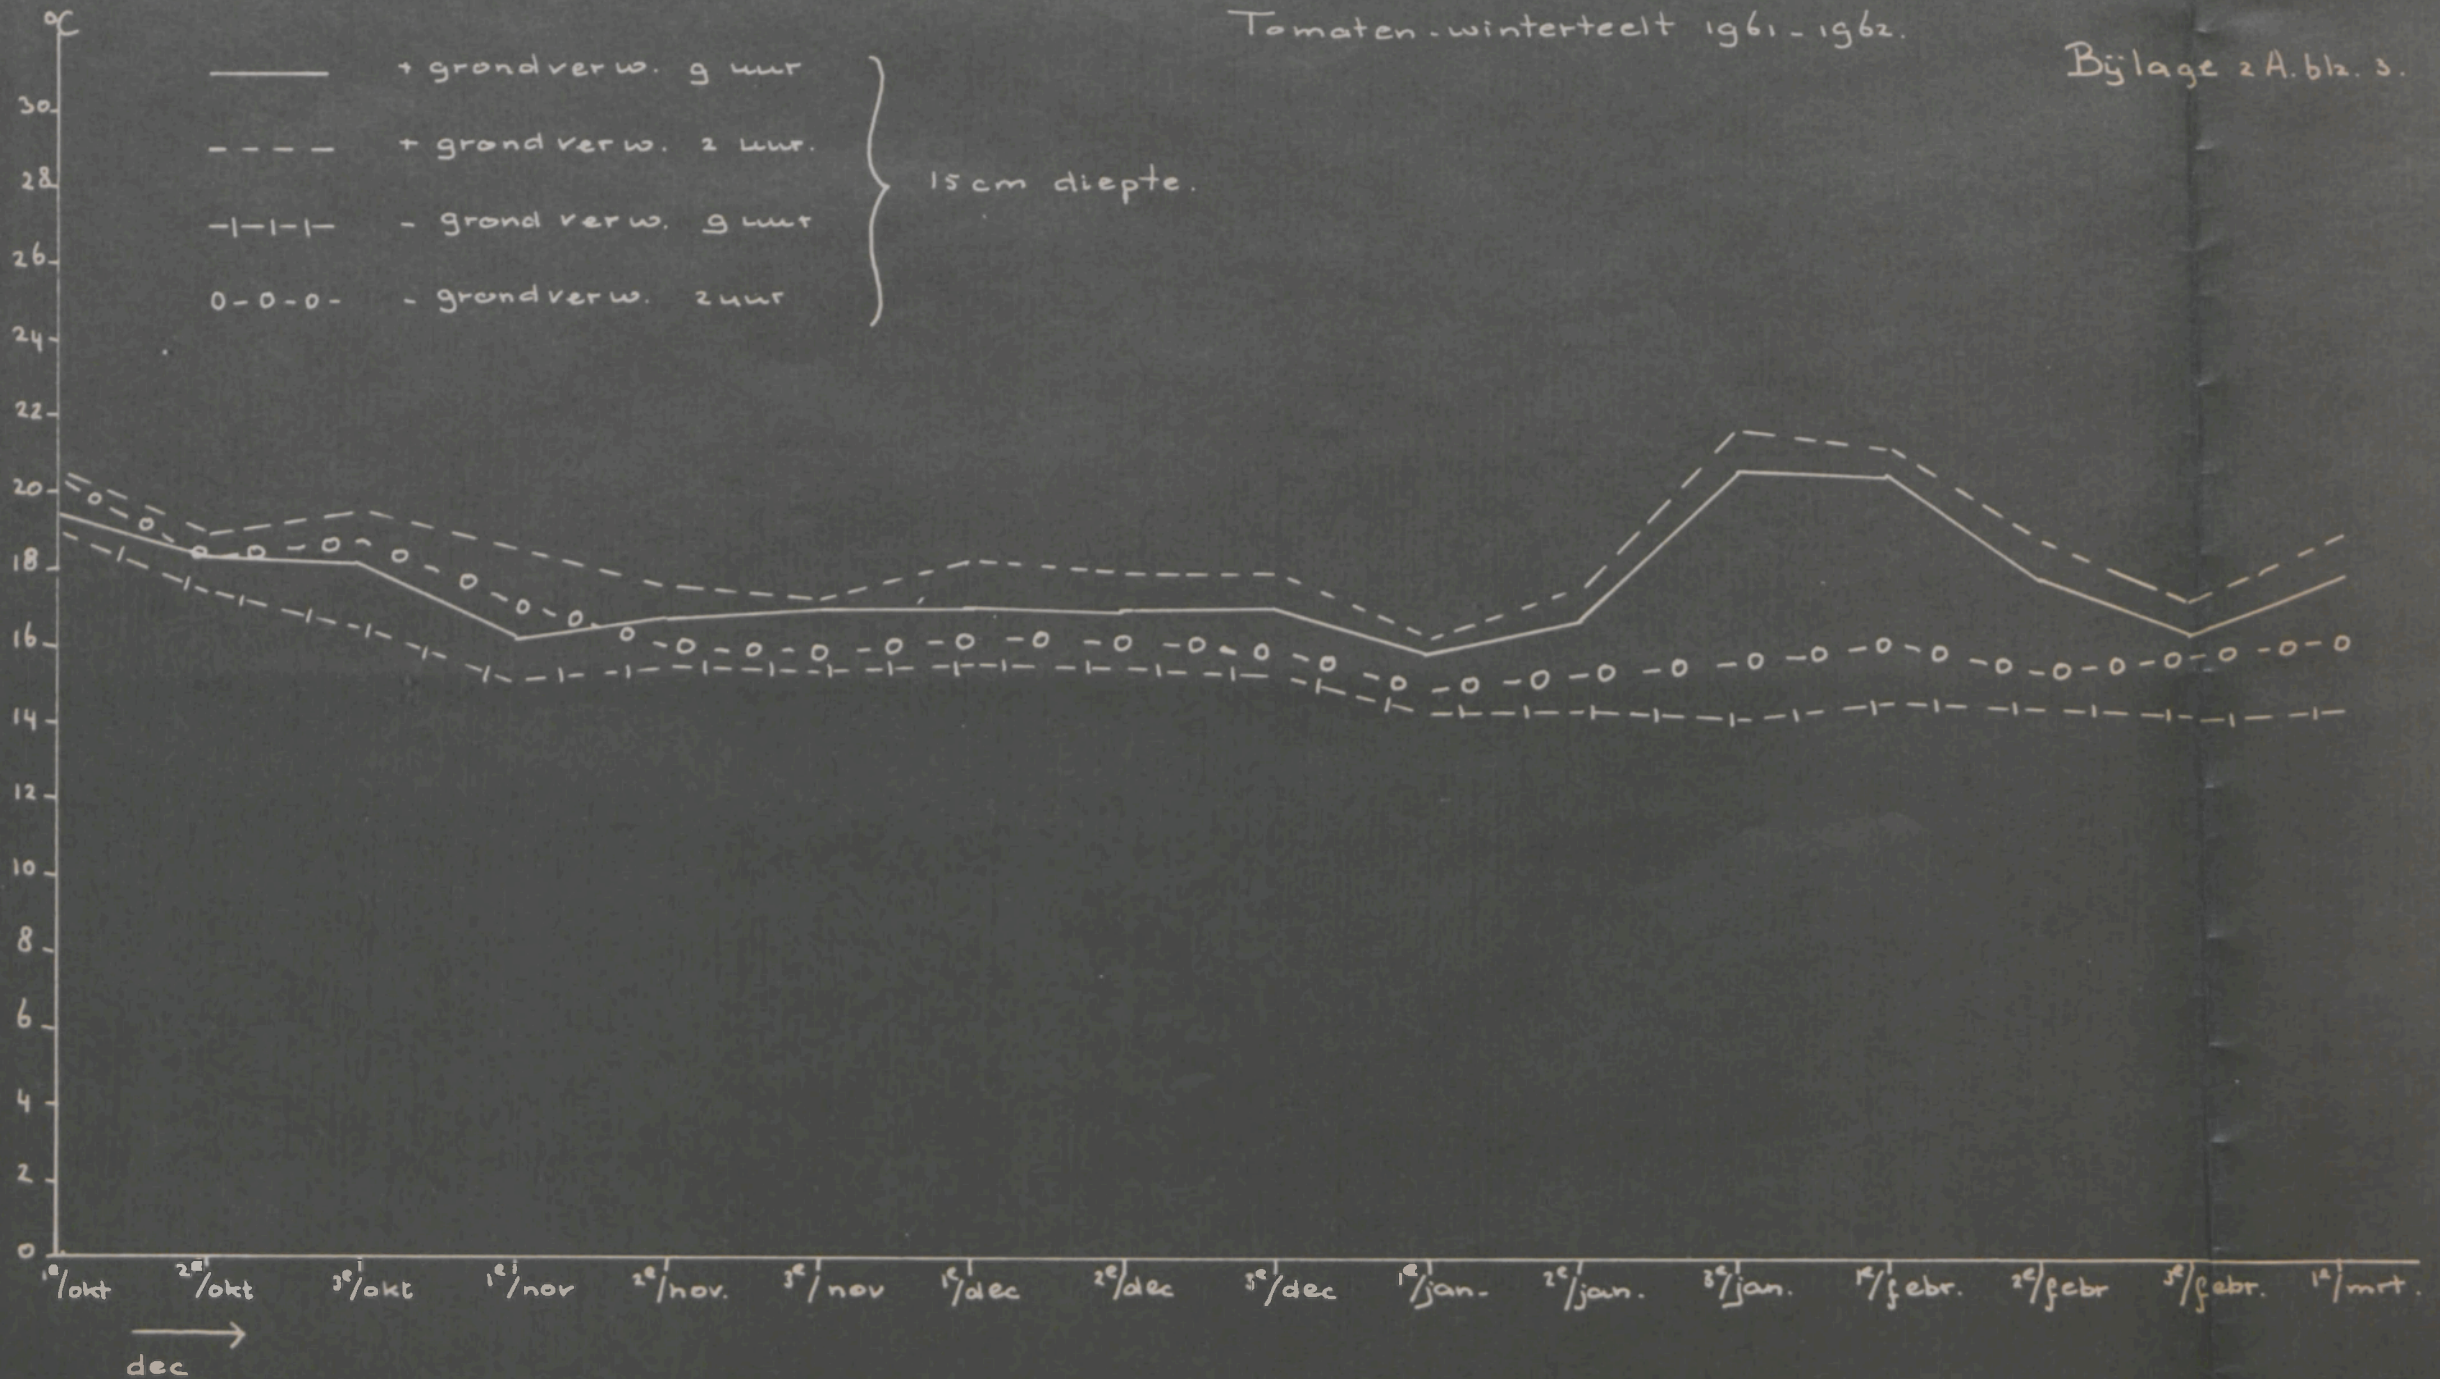 °C
Tomaten-winterteelt 1961-1962.
Bijlage 2A. blz. 3.
+ grondverw. 9 uur
+ grondverw. 2 uur.
- grondverw. 9 uur
- grondverw. 2 uur
15 cm diepte.
30
28
26
24
22
20
18
16
14
12
10
8
6
4
2
0
1e/okt 2e/okt 3e/okt 1e/nov 2e/nov. 3e/nov 1e/dec 2e/dec 3e/dec 1e/jan. 2e/jan. 3e/jan. 1e/febr. 2e/febr 3e/febr. 1e/mrt.
dec